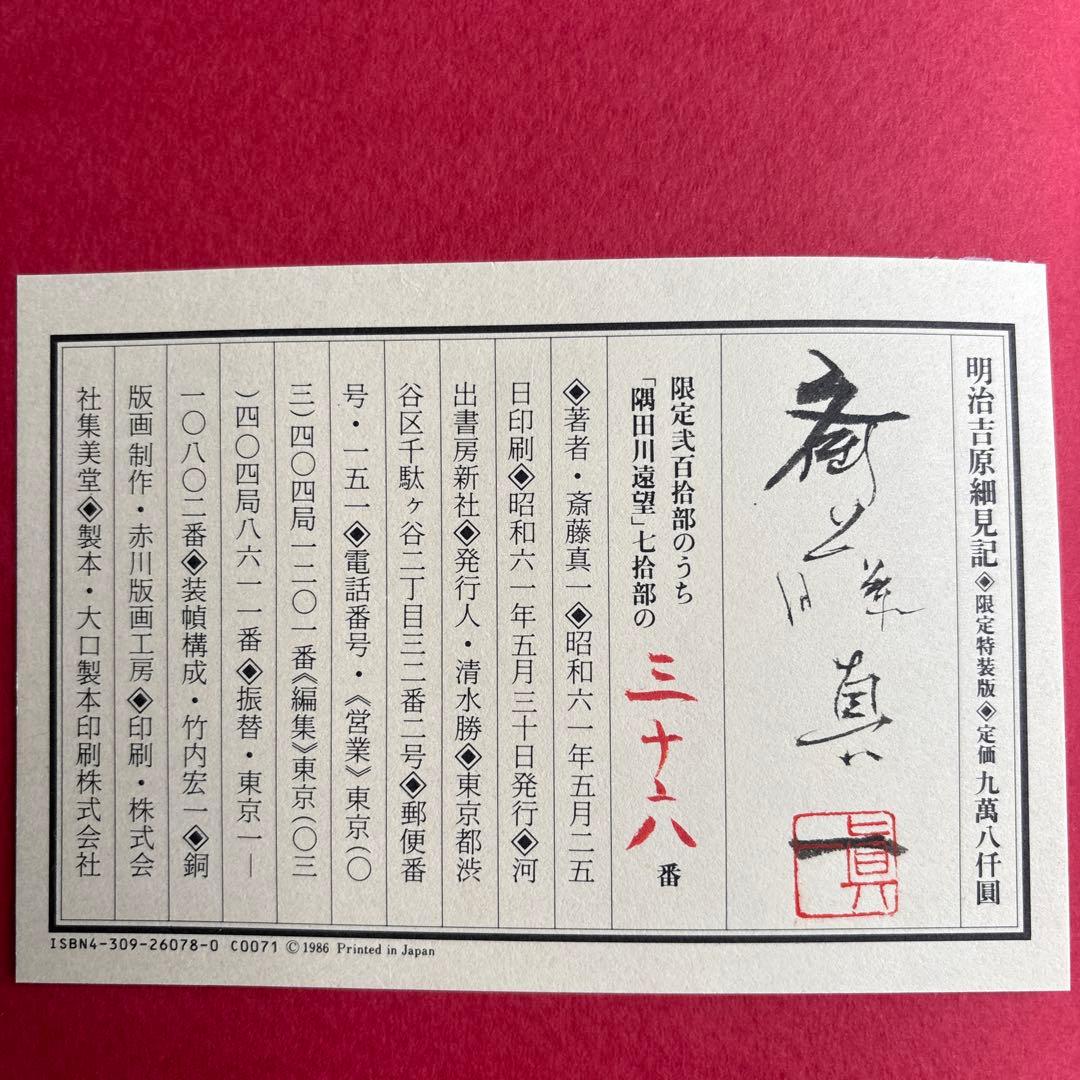 明治吉原細見記◈限定特装版◈定価 九萬八仟圓
斎藤真一
限定弐百拾部のうち
「隅田川遠望」七拾部の 三十六 番
◈著者・斎藤真一◈昭和六一年五月二五
日印刷◈昭和六一年五月三十日発行◈河
出書房新社◈発行人・清水勝◈東京都渋
谷区千駄ヶ谷二丁目三二番二号◈郵便番
号・一五一◈電話番号・《営業》東京(〇
三)四〇四局一二〇一番《編集》東京(〇三
)四〇四局八六一一番◈振替・東京一―
一〇八〇二番◈装幀構成・竹内宏一◈銅
版画制作・赤川版画工房◈印刷・株式会
社集美堂◈製本・大口製本印刷株式会社
ISBN4-309-26078-0 C0071 ©1986 Printed in Japan